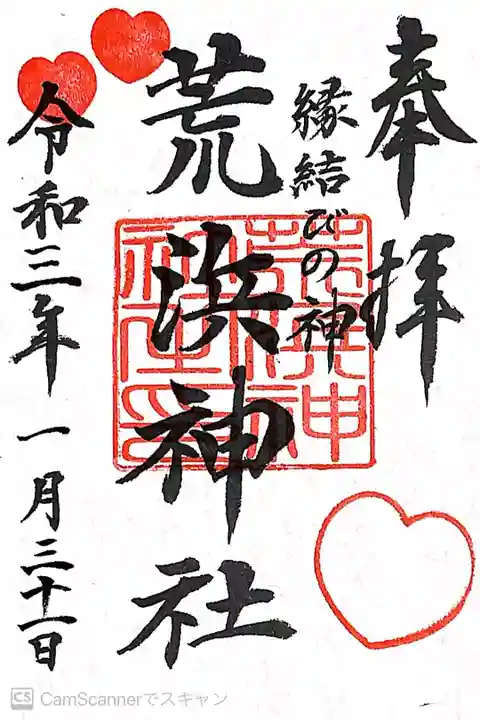 奉拝
縁結びの神
荒浜神社
令和三年一月三十一日
CS CamScannerでスキャン